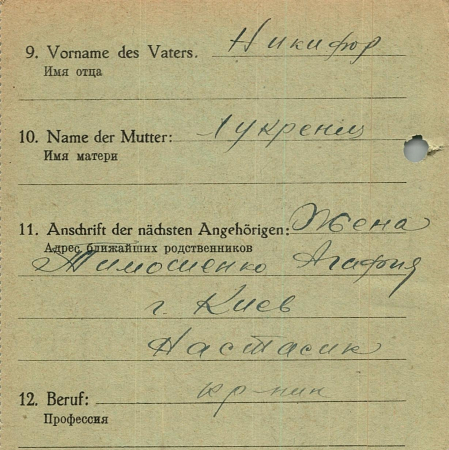 9. Vorname des Vaters. Никифор
Имя отца
10. Name der Mutter: Лукрения
Имя матери
11. Anschrift der nächsten Angehörigen: Жена
Адрес ближайших родственников
Тимошенко Агафия
г. Киев
Настасик
12. Beruf: кр-нин
Профессия